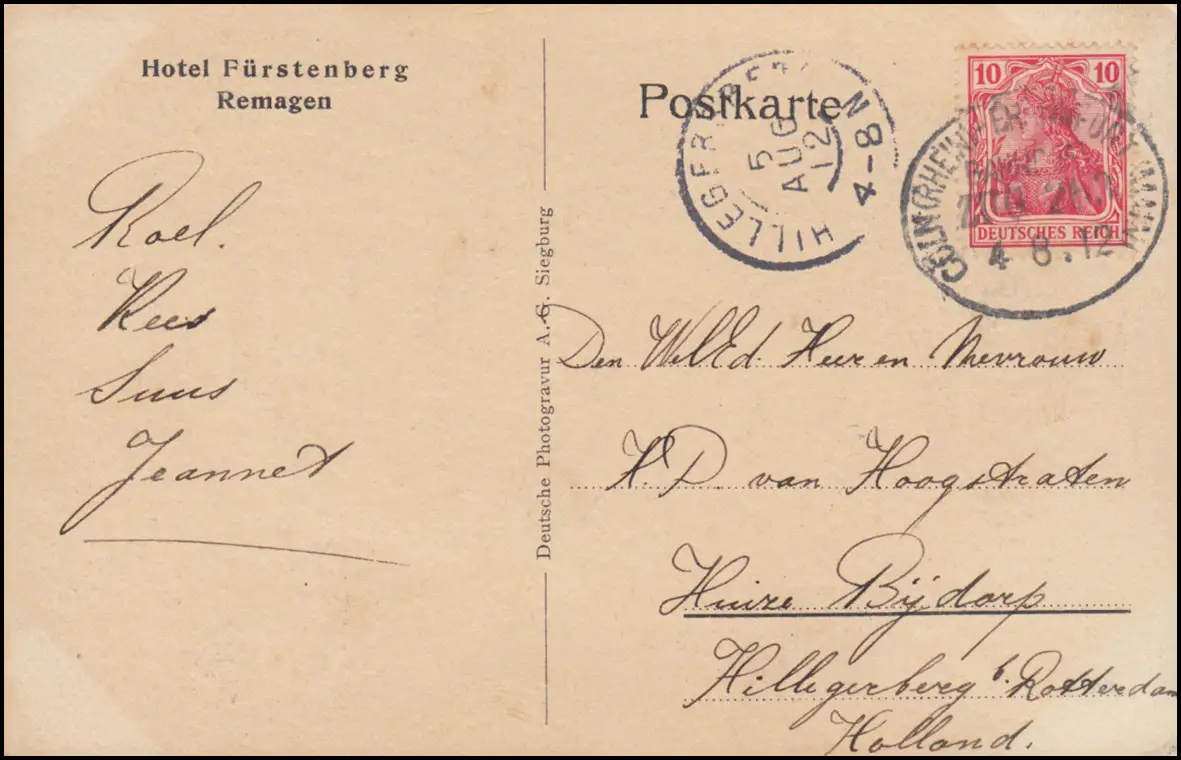 Hotel Fürstenberg
Remagen
Postkarte
10 10
DEUTSCHES REICH
CÖLN (RHEIN)
ZUG
4 8.12
HILLEGERSBERG
5
AUG
12
4-8 N
Roel.
Kees
Suus
Jeannet
Deutsche Photogravur A.-G. Siegburg
Den WelEd. Heer en Mevrouw
H. P. van Hoogstraten
Huize Bijdorp
Hillegerberg b. Rotterdam
Holland.